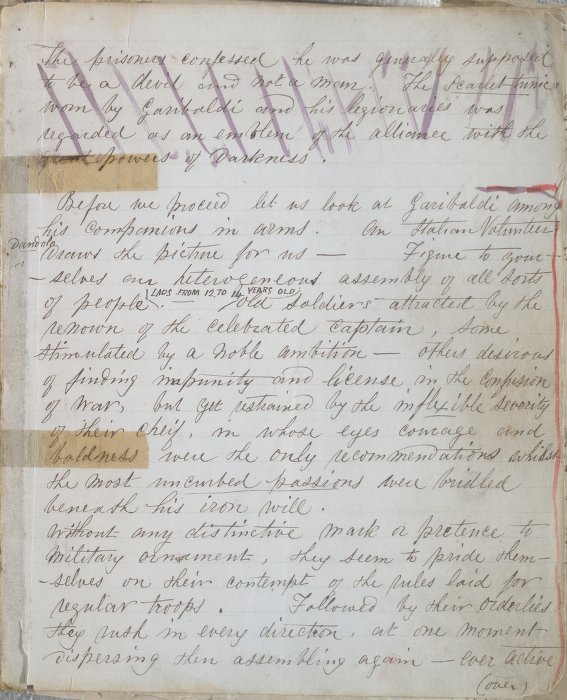 The prisoner confessed he was generally supposed
to be a devil and not a man. The Scarlet tunic
worn by Garibaldi and his legionaries was
regarded as an emblem of the alliance with the
powers of Darkness.
Before we proceed let us look at Garibaldi among
his companions in arms. An Italian Volunteer
Dandolo
draws the picture for us — Figure to your-
-selves an heterogeneous assembly of all sorts
LADS FROM 12 TO 14 YEARS OLD
of people, Old Soldiers attracted by the
renown of the celebrated Captain, some
stimulated by a noble ambition — others desirous
of finding impunity and license in the confusion
of war, but yet restrained by the inflexible severity
of their cheif, in whose eyes courage and
boldness were the only recommendations whilst
the most uncurbed passions were bridled
beneath his iron will.
Without any distinctive mark or pretence to
Military ornament, they seem to pride them-
-selves on their contempt of the rules laid for
regular troops. Followed by their Orderlies
they rush in every direction, at one moment
dispersing then assembling again — ever active
(over)